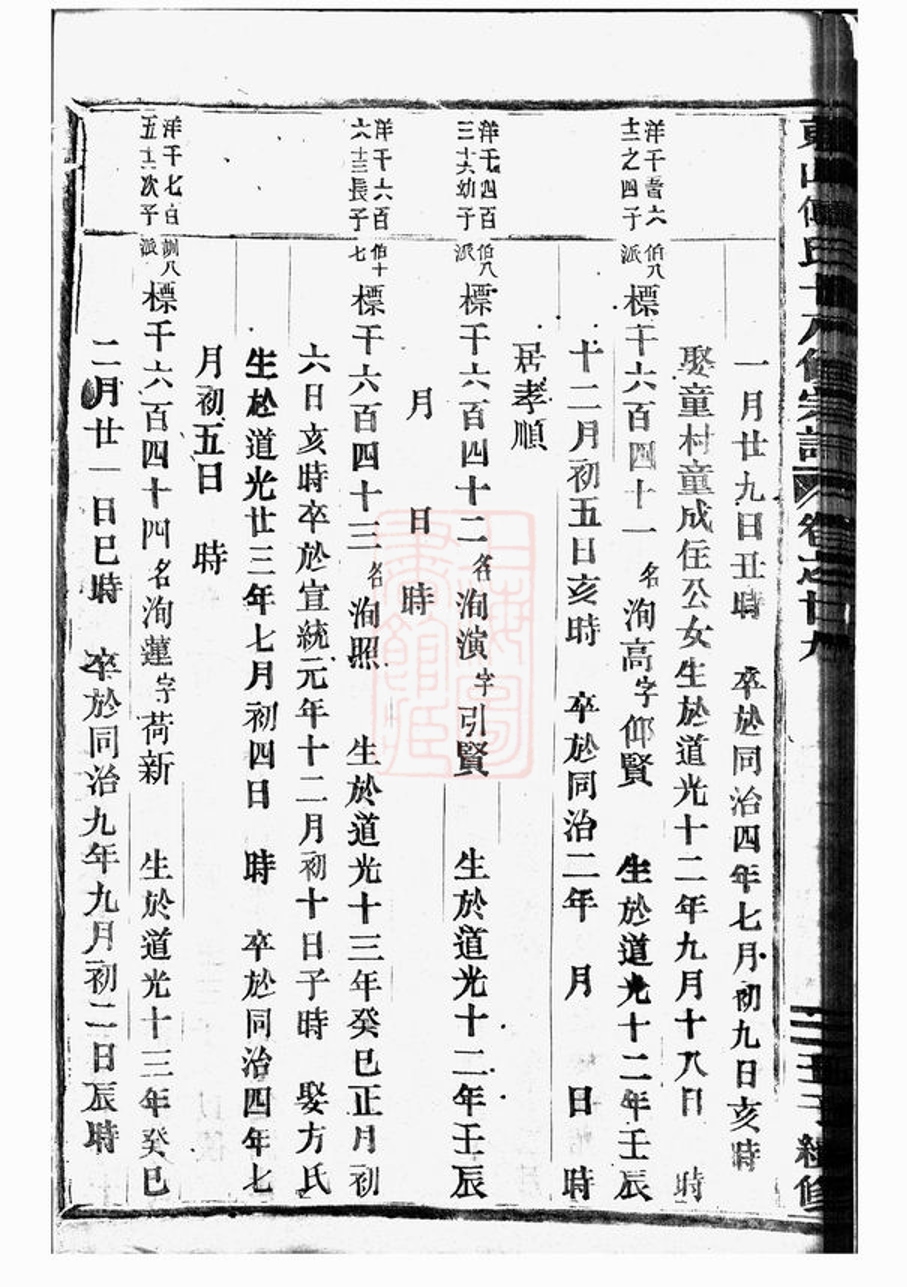 東山傅氏十八修宗譜 卷之廿九 壬子續修
一月廿九日丑時 卒於同治四年七月初九日亥時
娶童村童成住公女生於道光十二年九月十八日 時
洋千 六
十三之四子
伯八
派
標千六百四十一名洵高字仰賢 生於道光十二年壬辰
十二月初五日亥時 卒於同治二年 月 日 時
居孝順
洋千四百
三十六幼子
伯八
派
標千六百四十二名洵演字引賢 生於道光十二年壬辰
月 日 時
洋千六百
六十三長子
伯十
七
標千六百四十三名洵照 生於道光十三年癸巳正月初
六日亥時卒於宣統元年十二月初十日子時 娶方氏
生於道光廿三年七月初四日 時 卒於同治四年七
月初五日 時
洋千七百
次子
訓八
派
標千六百四十四名洵蓮字荷新 生於道光十三年癸巳
二月廿一日巳時 卒於同治九年九月初二日辰時